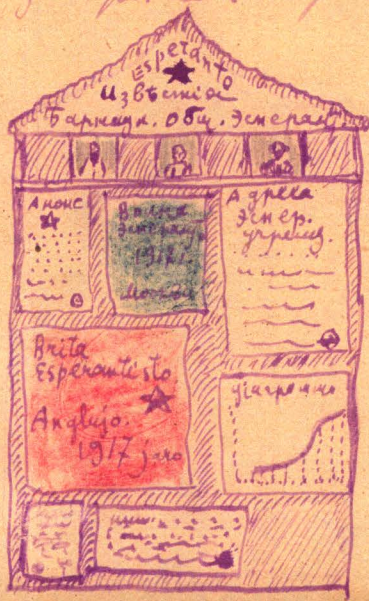 Esperanto
Извѣстія
Барнаул. общ. Эсперант
Анонс
Эсперант
1917 г.
Москва
Адреса
эспер.
учрежд.
Brita
Esperantisto
Anglujo.
1917 jaro
Диаграмма